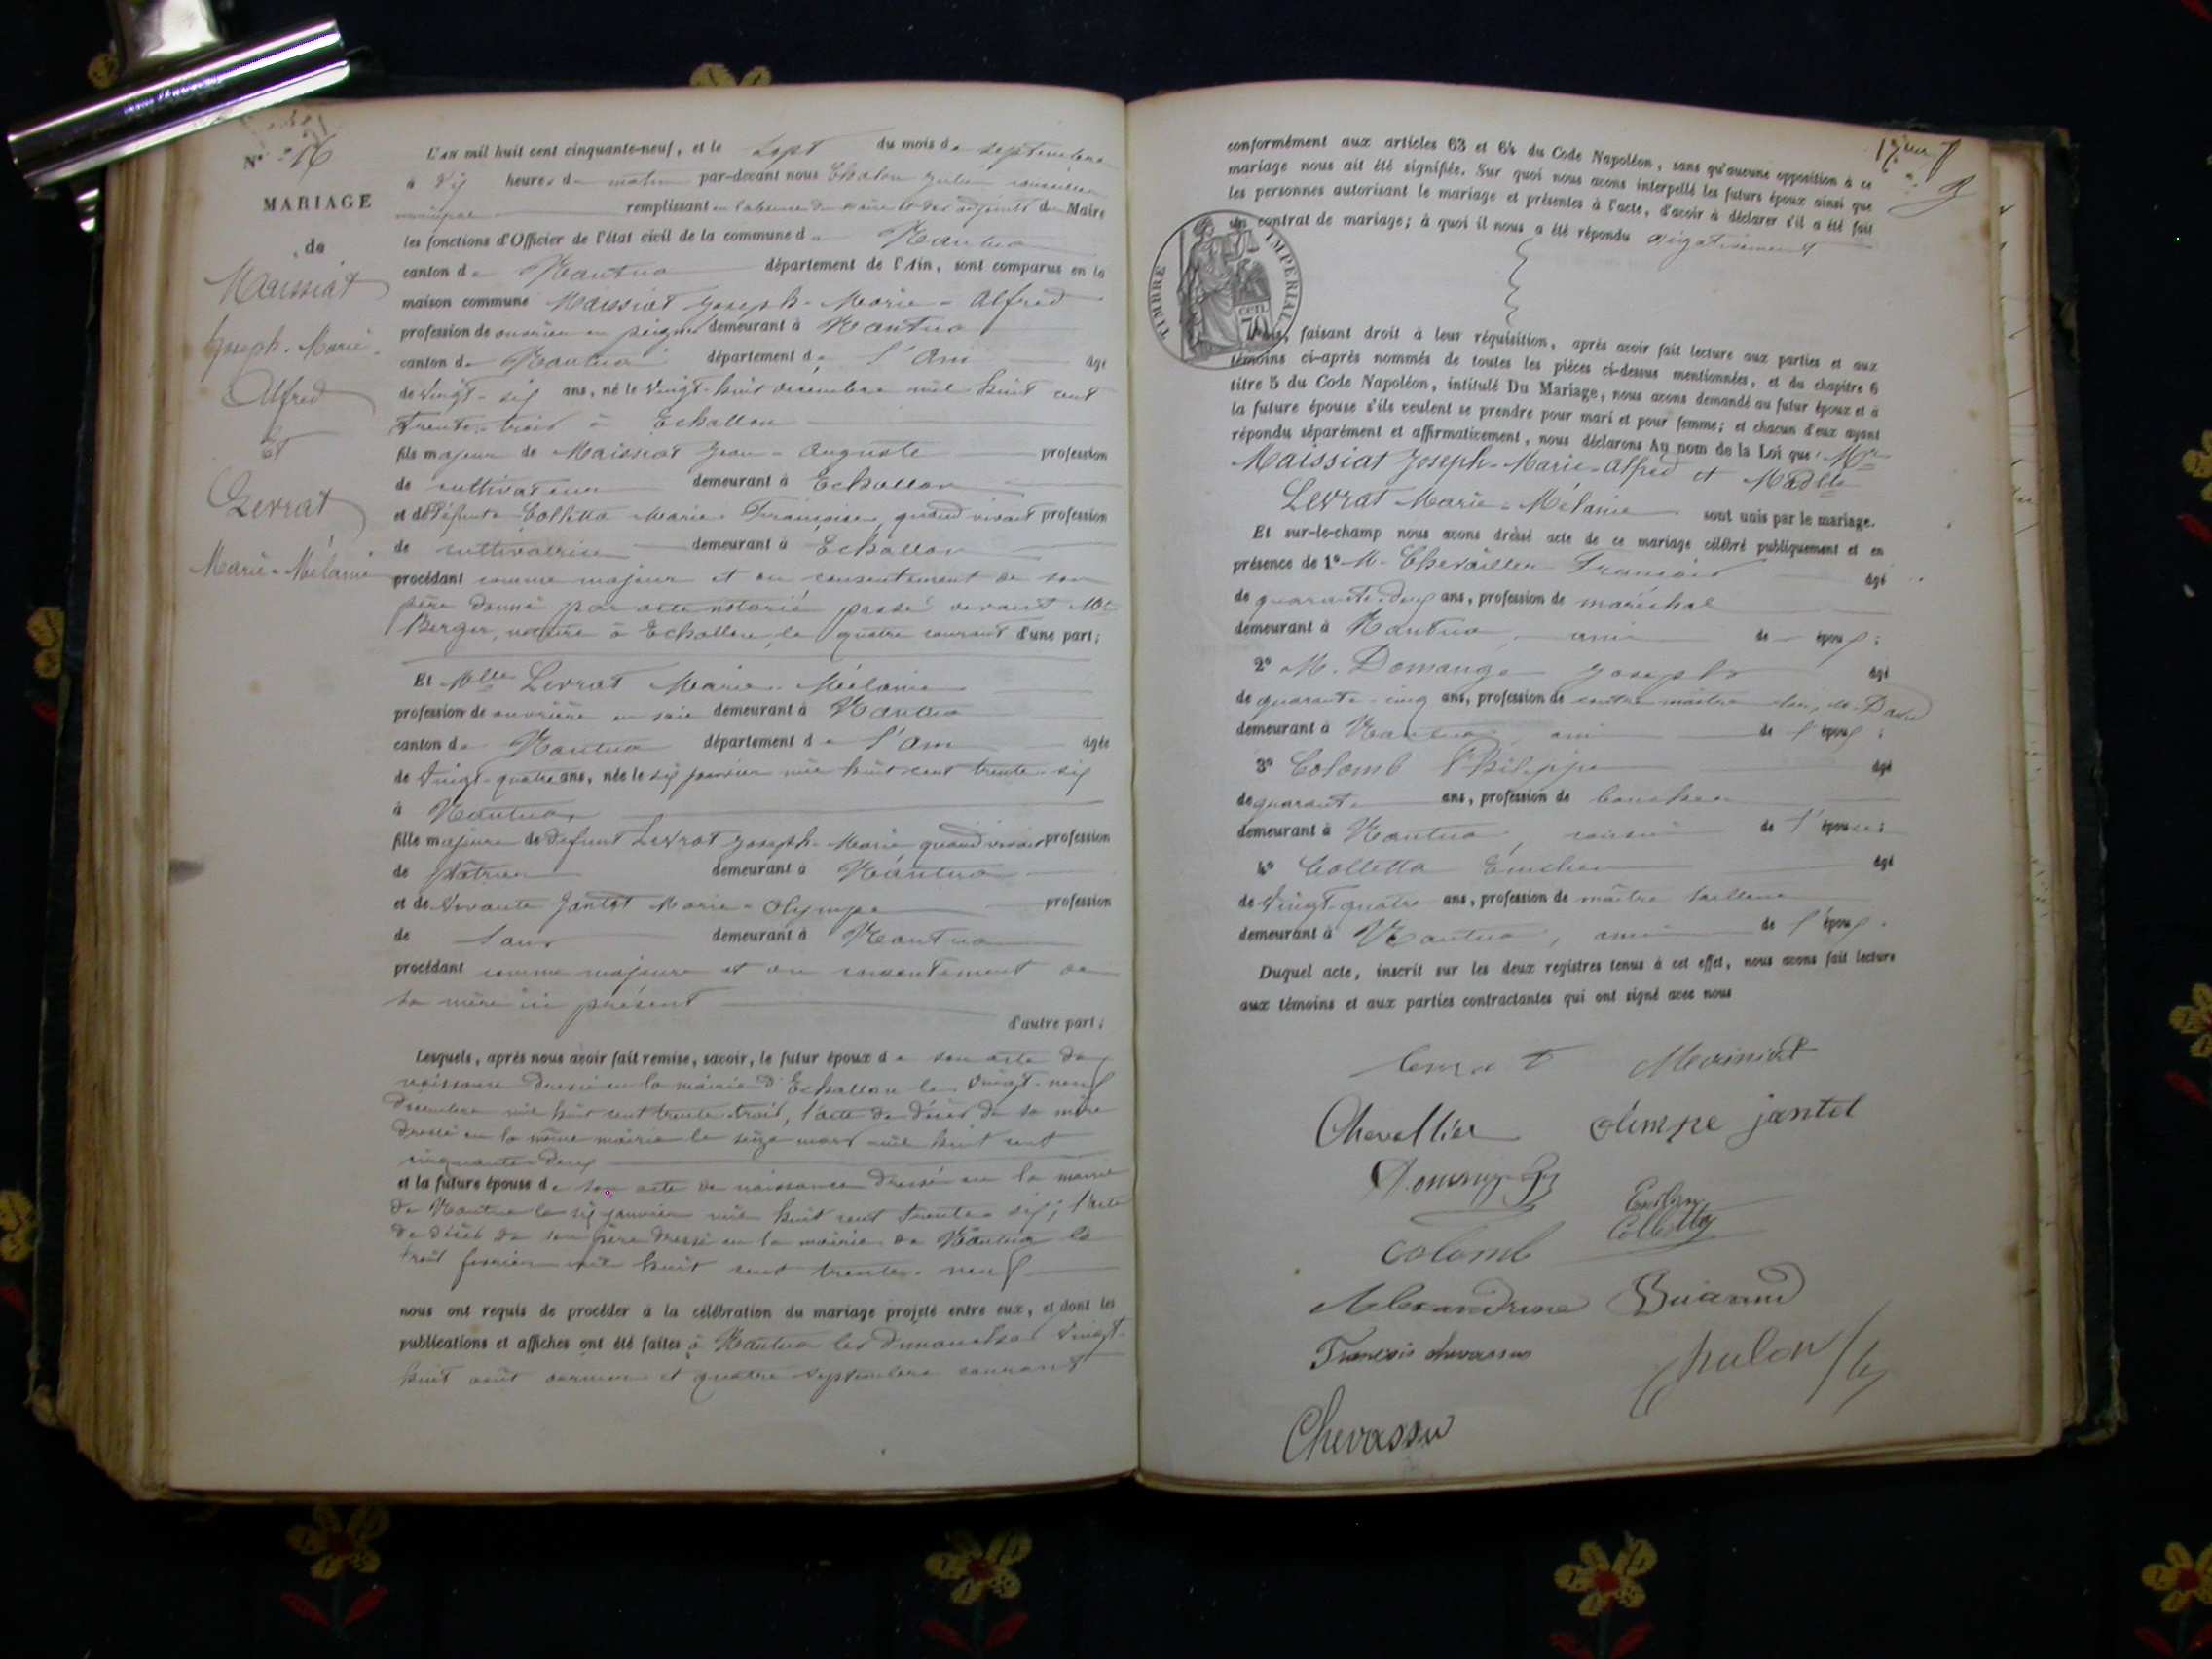 N° 16
MARIAGE
de
Maissiat
Joseph-Marie-
Alfred
Et
Levrat
Marie-Mélanie
L'an mil huit cent cinquante-neuf, et le sept du mois de septembre
à dix heures de matin par-devant nous Chalon Julien conseiller
municipal remplissant en l'absence du maire et des adjoints de Maire
les fonctions d'Officier de l'état civil de la commune de Nantua
canton de Nantua département de l'Ain, sont comparus en la
maison commune Maissiat Joseph-Marie-Alfred
profession de ouvrier en peignes demeurant à Nantua
canton de Nantua département de l'Ain âgé
de vingt-six ans, né le vingt-huit décembre mil huit cent
trente-trois à Echallon
fils majeur de Maissiat Jean-Auguste profession
de cultivateur demeurant à Echallon
et de défunte Colletta Marie-Françoise, quand vivait profession
de cultivatrice demeurant à Echallon
procédant comme majeur et du consentement de son
père donné par acte notarié passé devant Me
Berger, notaire à Echallon, le quatre courant d'une part;
Et Mlle Levrat Marie-Mélanie
profession de ouvrière en soie demeurant à Nantua
canton de Nantua département de l'Ain âgée
de vingt-quatre ans, née le six janvier mil huit cent trente-six
à Nantua,
fille majeure de défunt Levrat Joseph-Marie quand vivait profession
de plâtrier demeurant à Nantua
et de vivante Jantet Marie-Olympe profession
de sans demeurant à Nantua
procédant comme majeure et du consentement de
sa mère ici présent
d'autre part;
Lesquels, après nous avoir fait remise, savoir, le futur époux de son acte de
naissance dressé en la mairie d'Echallon le vingt-neuf
décembre mil huit cent trente-trois, l'acte de décès de sa mère
dressé en la même mairie le seize mars mil huit cent
cinquante-deux
et la future épouse de son acte de naissance dressé en la mairie
de Nantua le six janvier mil huit cent trente-six; l'acte
de décès de son père dressé en la mairie de Nantua le
trois février mil huit cent trente-neuf
nous ont requis de procéder à la célébration du mariage projeté entre eux, et dont les
publications et affiches ont été faites à Nantua les dimanches vingt-
huit août dernier et quatre septembre courant
conformément aux articles 63 et 64 du Code Napoléon, sans qu'aucune opposition à ce
mariage nous ait été signifiée. Sur quoi nous avons interpellé les futurs époux ainsi que
les personnes autorisant le mariage et présentes à l'acte, d'avoir à déclarer s'il a été fait
un contrat de mariage; à quoi il nous a été répondu négativement
TIMBRE IMPERIAL
70 CEN.
Nous, faisant droit à leur réquisition, après avoir fait lecture aux parties et aux
témoins ci-après nommés de toutes les pièces ci-dessus mentionnées, et du chapitre 6
titre 5 du Code Napoléon, intitulé Du Mariage, nous avons demandé au futur époux et à
la future épouse s'ils veulent se prendre pour mari et pour femme; et chacun d'eux ayant
répondu séparément et affirmativement, nous déclarons Au nom de la Loi que Mr
Maissiat Joseph-Marie-Alfred et Madlle
Levrat Marie-Mélanie sont unis par le mariage.
Et sur-le-champ nous avons dressé acte de ce mariage célébré publiquement et en
présence de 1° M. Chevallier François âgé
de quarante-deux ans, profession de maréchal
demeurant à Nantua, ami de époux;
2° M. Domange Joseph âgé
de quarante-cinq ans, profession de contre maître
demeurant à Nantua, ami de l'époux;
3° Colomb Philippe âgé
de quarante ans, profession de boucher
demeurant à Nantua, voisin de l'épouse;
4° Colletta Emilien âgé
de vingt-quatre ans, profession de maître tailleur
demeurant à Nantua, ami de l'époux.
Duquel acte, inscrit sur les deux registres tenus à cet effet, nous avons fait lecture
aux témoins et aux parties contractantes qui ont signé avec nous
Levrat Maissiat
Chevallier olimpe jantet
Emilien
Colletta
Colomb
Alexandrine
François chevassus
Chalon
Chevassu